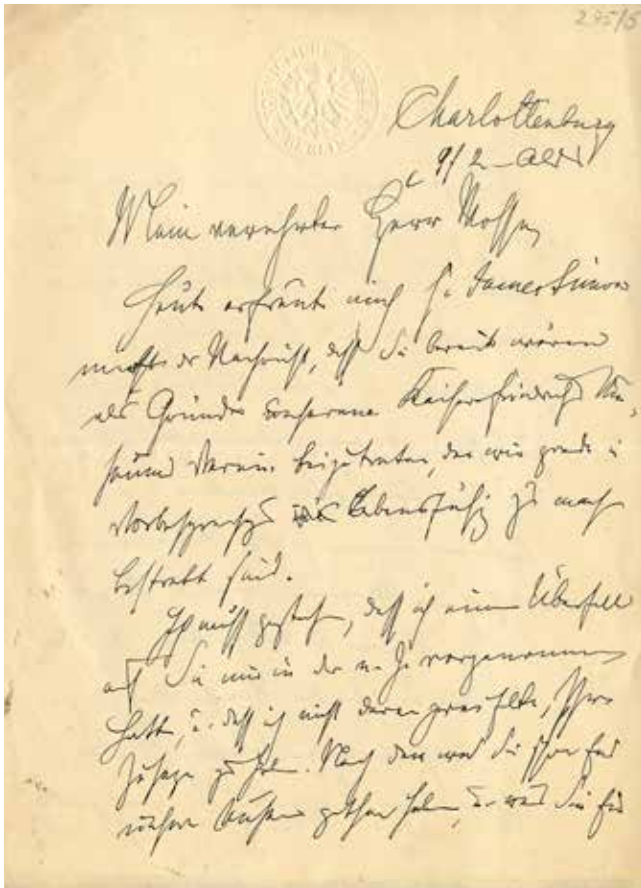 295/5
Charlottenburg
d 9/2
Mein verehrter Herr Mosse,
Heute erfreute mich H. James Simon
mit der Nachricht, daß Sie bereit wären
als Gründer unserem Kaiser Friedrich Mu-
seums Verein beizutreten, den wir grade in
lebensfähig zu machen
bestrebt sind.
Ich muß gestehen, daß ich einen Überfall
auf Sie mir in der vorgenommen
hatte, u. daß ich nicht daran zweifelte, Ihre
Zusage zu haben. Nach dem was Sie schon für
unsere gethan haben, u. was Sie für